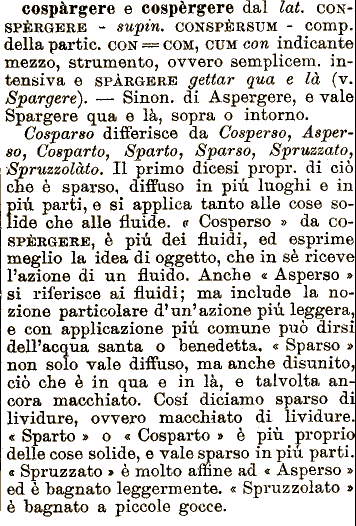 cospàrgere e cospèrgere dal lat. CON-
SPÈRGERE - supin. CONSPÈRSUM - comp.
della partic. CON = COM, CUM con indicante
mezzo, strumento, ovvero semplicem. in-
tensiva e SPÀRGERE gettar qua e là (v.
Spargere). — Sinon. di Aspergere, e vale
Spargere qua e là, sopra o intorno.
Cosparso differisce da Cosperso, Asper-
so, Cosparto, Sparto, Sparso, Spruzzato,
Spruzzolàto. Il primo dicesi propr. di ciò
che è sparso, diffuso in piú luoghi e in
piú parti, e si applica tanto alle cose so-
lide che alle fluide. « Cosperso » da CO-
SPÈRGERE, è piú dei fluidi, ed esprime
meglio la idea di oggetto, che in sè riceve
l'azione di un fluido. Anche « Asperso »
si riferisce ai fluidi; ma include la no-
zione particolare d'un'azione piú leggera,
e con applicazione piú comune può dirsi
dell'acqua santa o benedetta. « Sparso »
non solo vale diffuso, ma anche disunito,
ciò che è in qua e in là, e talvolta an-
cora macchiato. Cosí diciamo sparso di
lividure, ovvero macchiato di lividure.
« Sparto » o « Cosparto » è piú proprio
delle cose solide, e vale sparso in piú parti.
« Spruzzato » è molto affine ad « Asperso »
ed è bagnato leggermente. « Spruzzolato »
è bagnato a piccole gocce.